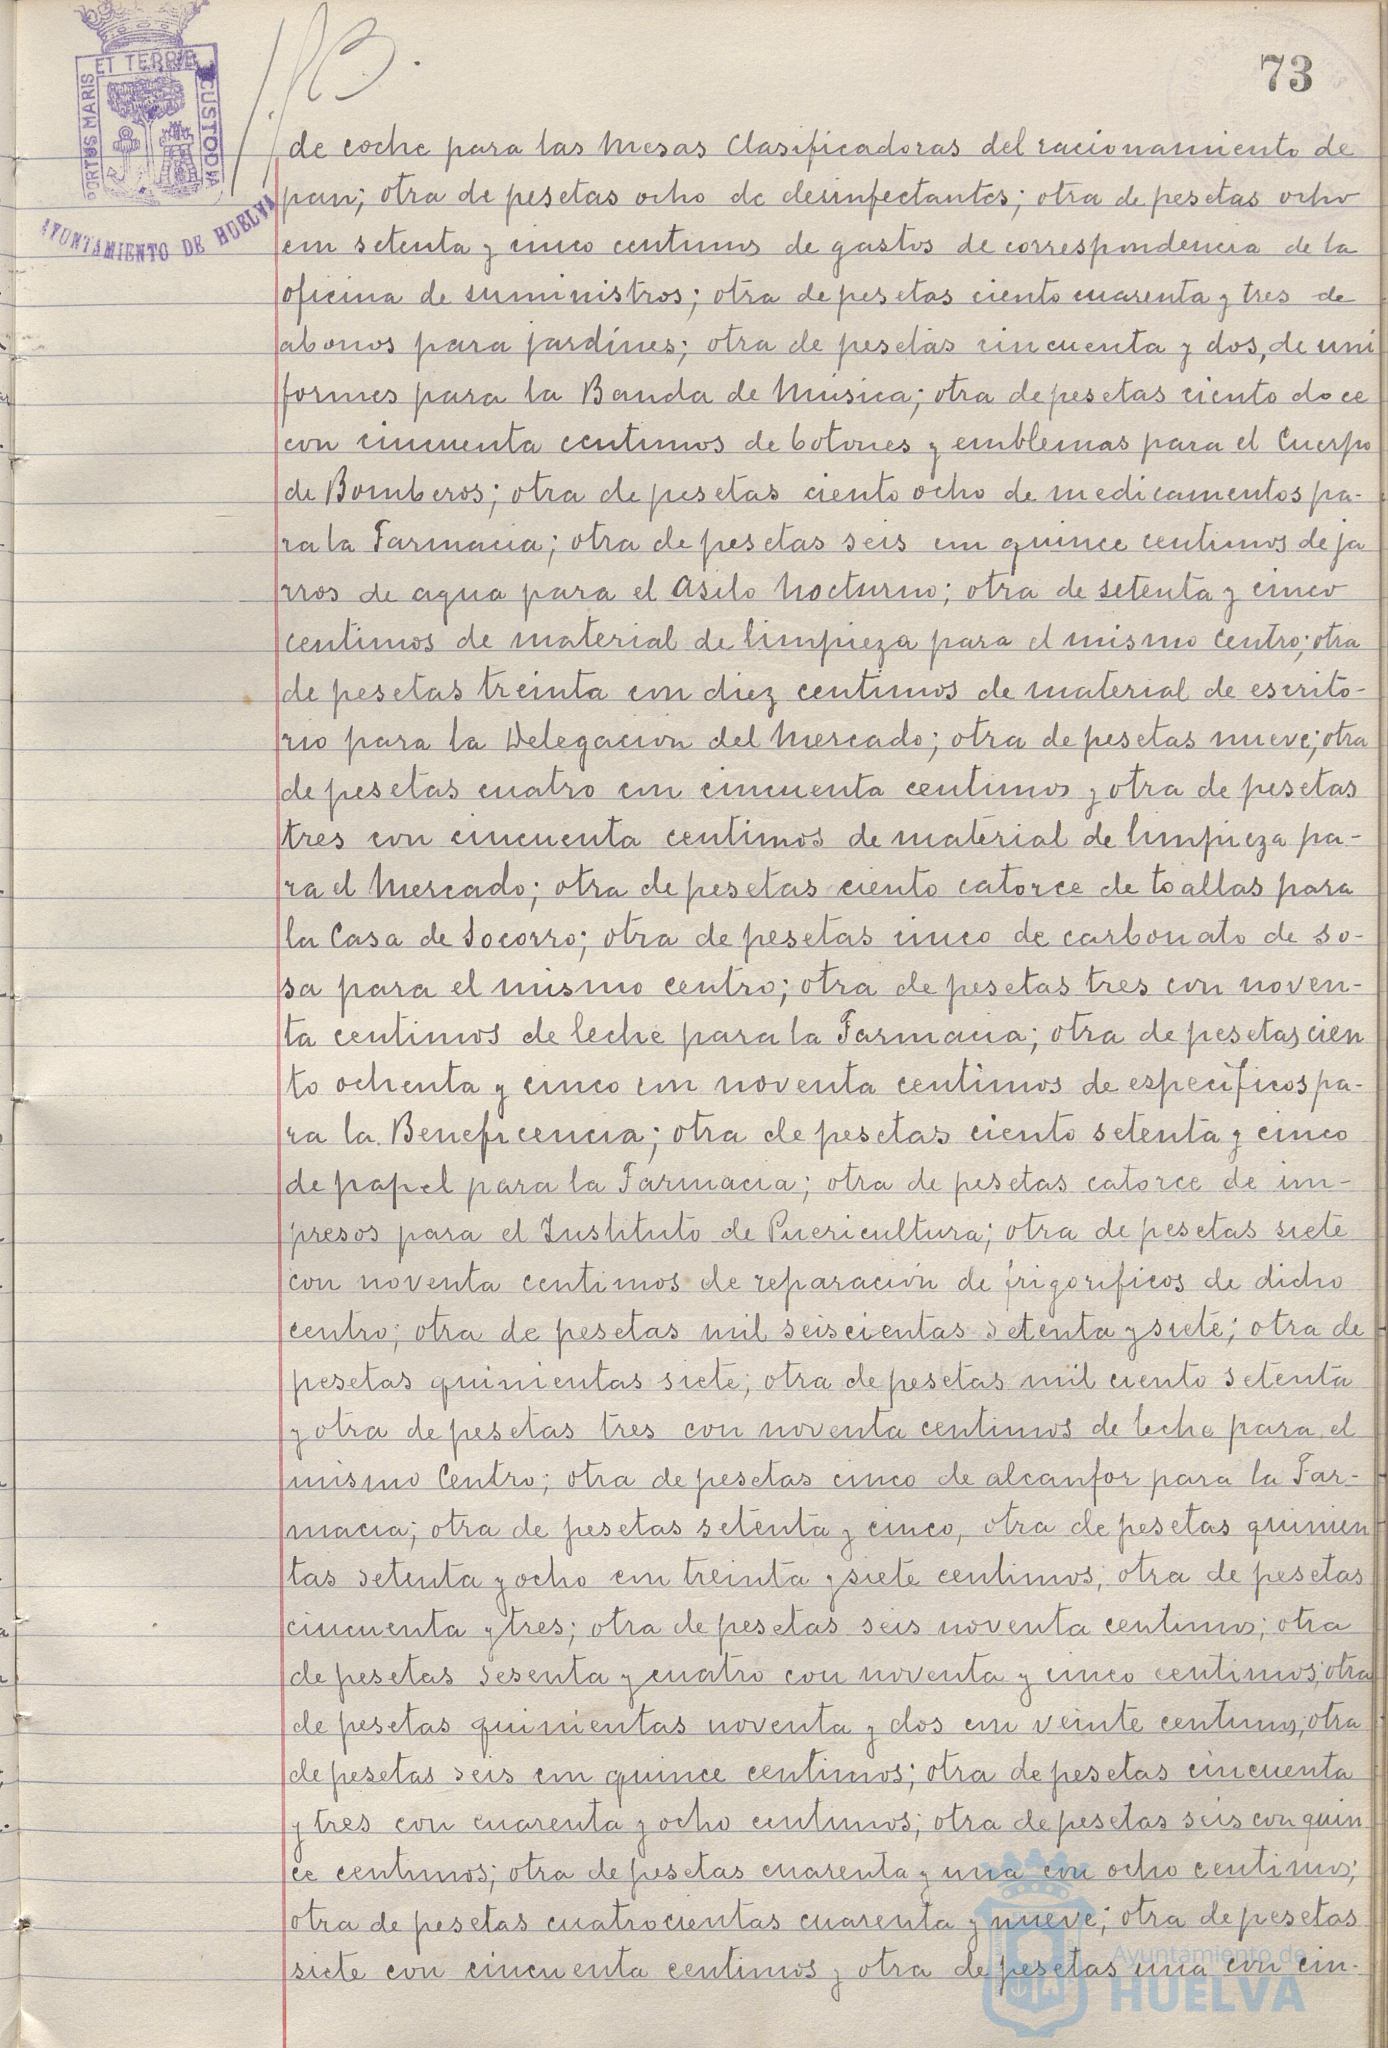 73
PORTUS MARIS ET TERRAE CUSTODIA
AYUNTAMIENTO DE HUELVA
de coche para las Mesas Clasificadoras del racionamiento de
pan; otra de pesetas ocho de desinfectantes; otra de pesetas ocho
con setenta y cinco centimos de gastos de correspondencia de la
oficina de suministros; otra de pesetas ciento cuarenta y tres de
abonos para jardines; otra de pesetas cincuenta y dos, de uni
formes para la Banda de Música; otra de pesetas ciento doce
con cincuenta centimos de botones y emblemas para el Cuerpo
de Bomberos; otra de pesetas ciento ocho de medicamentos pa-
ra la Farmacia; otra de pesetas seis con quince centimos de ja
rros de agua para el Asilo Nocturno; otra de setenta y cinco
centimos de material de limpieza para el mismo centro; otra
de pesetas treinta con diez centimos de material de escrito-
rio para la Delegación del Mercado; otra de pesetas nueve; otra
de pesetas cuatro con cincuenta centimos y otra de pesetas
tres con cincuenta centimos de material de limpieza pa-
ra el Mercado; otra de pesetas ciento catorce de toallas para
la Casa de Socorro; otra de pesetas cinco de carbonato de so-
sa para el mismo centro; otra de pesetas tres con noven-
ta centimos de leche para la Farmacia; otra de pesetas cien
to ochenta y cinco con noventa centimos de específicos pa-
ra la Beneficencia; otra de pesetas ciento setenta y cinco
de papel para la Farmacia; otra de pesetas catorce de im-
presos para el Instituto de Puericultura; otra de pesetas siete
con noventa centimos de reparación de frigorificos de dicho
centro; otra de pesetas mil seiscientas setenta y siete; otra de
pesetas quinientas siete; otra de pesetas mil ciento setenta
y otra de pesetas tres con noventa centimos de leche para el
mismo Centro; otra de pesetas cinco de alcanfor para la Far-
macia; otra de pesetas setenta y cinco, otra de pesetas quinien
tas setenta y ocho con treinta y siete centimos, otra de pesetas
cincuenta y tres; otra de pesetas seis noventa centimos; otra
de pesetas sesenta y cuatro con noventa y cinco centimos; otra
de pesetas quinientas noventa y dos con veinte centimos; otra
de pesetas seis con quince centimos; otra de pesetas cincuenta
y tres con cuarenta y ocho centimos; otra de pesetas seis con quin
ce centimos; otra de pesetas cuarenta y una con ocho centimos;
otra de pesetas cuatrocientas cuarenta y nueve; otra de pesetas
siete con cincuenta centimos y otra de pesetas una con cin-
Ayuntamiento de
HUELVA